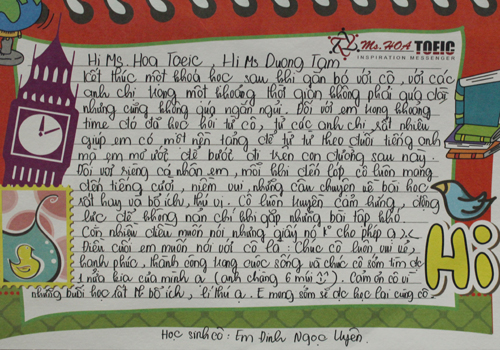 Ms. HOA TOEIC
INSPIRATION MESSENGER
Hi Ms. Hoa Toeic, Hi Ms Duong Tam
Kết thúc một khoá học sau khi gắn bó với cô, với các
anh chị trong một khoảng thời gian không phải quá dài
nhưng cũng không quá ngắn ngủi. Đối với em trong khoảng
time đó đã học hỏi từ cô, từ các anh chị rất nhiều
giúp em có một nền tảng để tự tư theo đuổi tiếng anh
mà em mơ ước để bước đi trên con đường sau này.
Đối với riêng cá nhân em, mỗi khi đến lớp cô luôn mang
đến tiếng cười, niềm vui, những câu chuyện về bài học
rất hay và bổ ích, thú vị. Cô luôn truyền cảm hứng, động
lực để không nản chí khi gặp những bài tập khó
Còn nhiều điều muốn nói, nhưng giấy nó k° cho phép ạ
Điều cuối em muốn nói với cô là: Chúc cô luôn vui vẻ,
hạnh phúc, thành công trong cuộc sống và chúc cô sớm tìm đc
1 nửa kia của mình ạ (anh chàng 6 múi). Cảm ơn cô vì
những buổi học rất bổ ích, lí thú ạ. E mong sớm sẽ đc học lại cùng cô.
Hi
Học sinh cô: Em Đinh Ngọc Uyên.